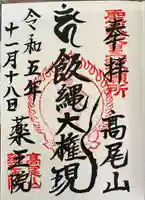 奉拝
高尾山
飯縄大権現
令和五年
十一月十八日
薬王院